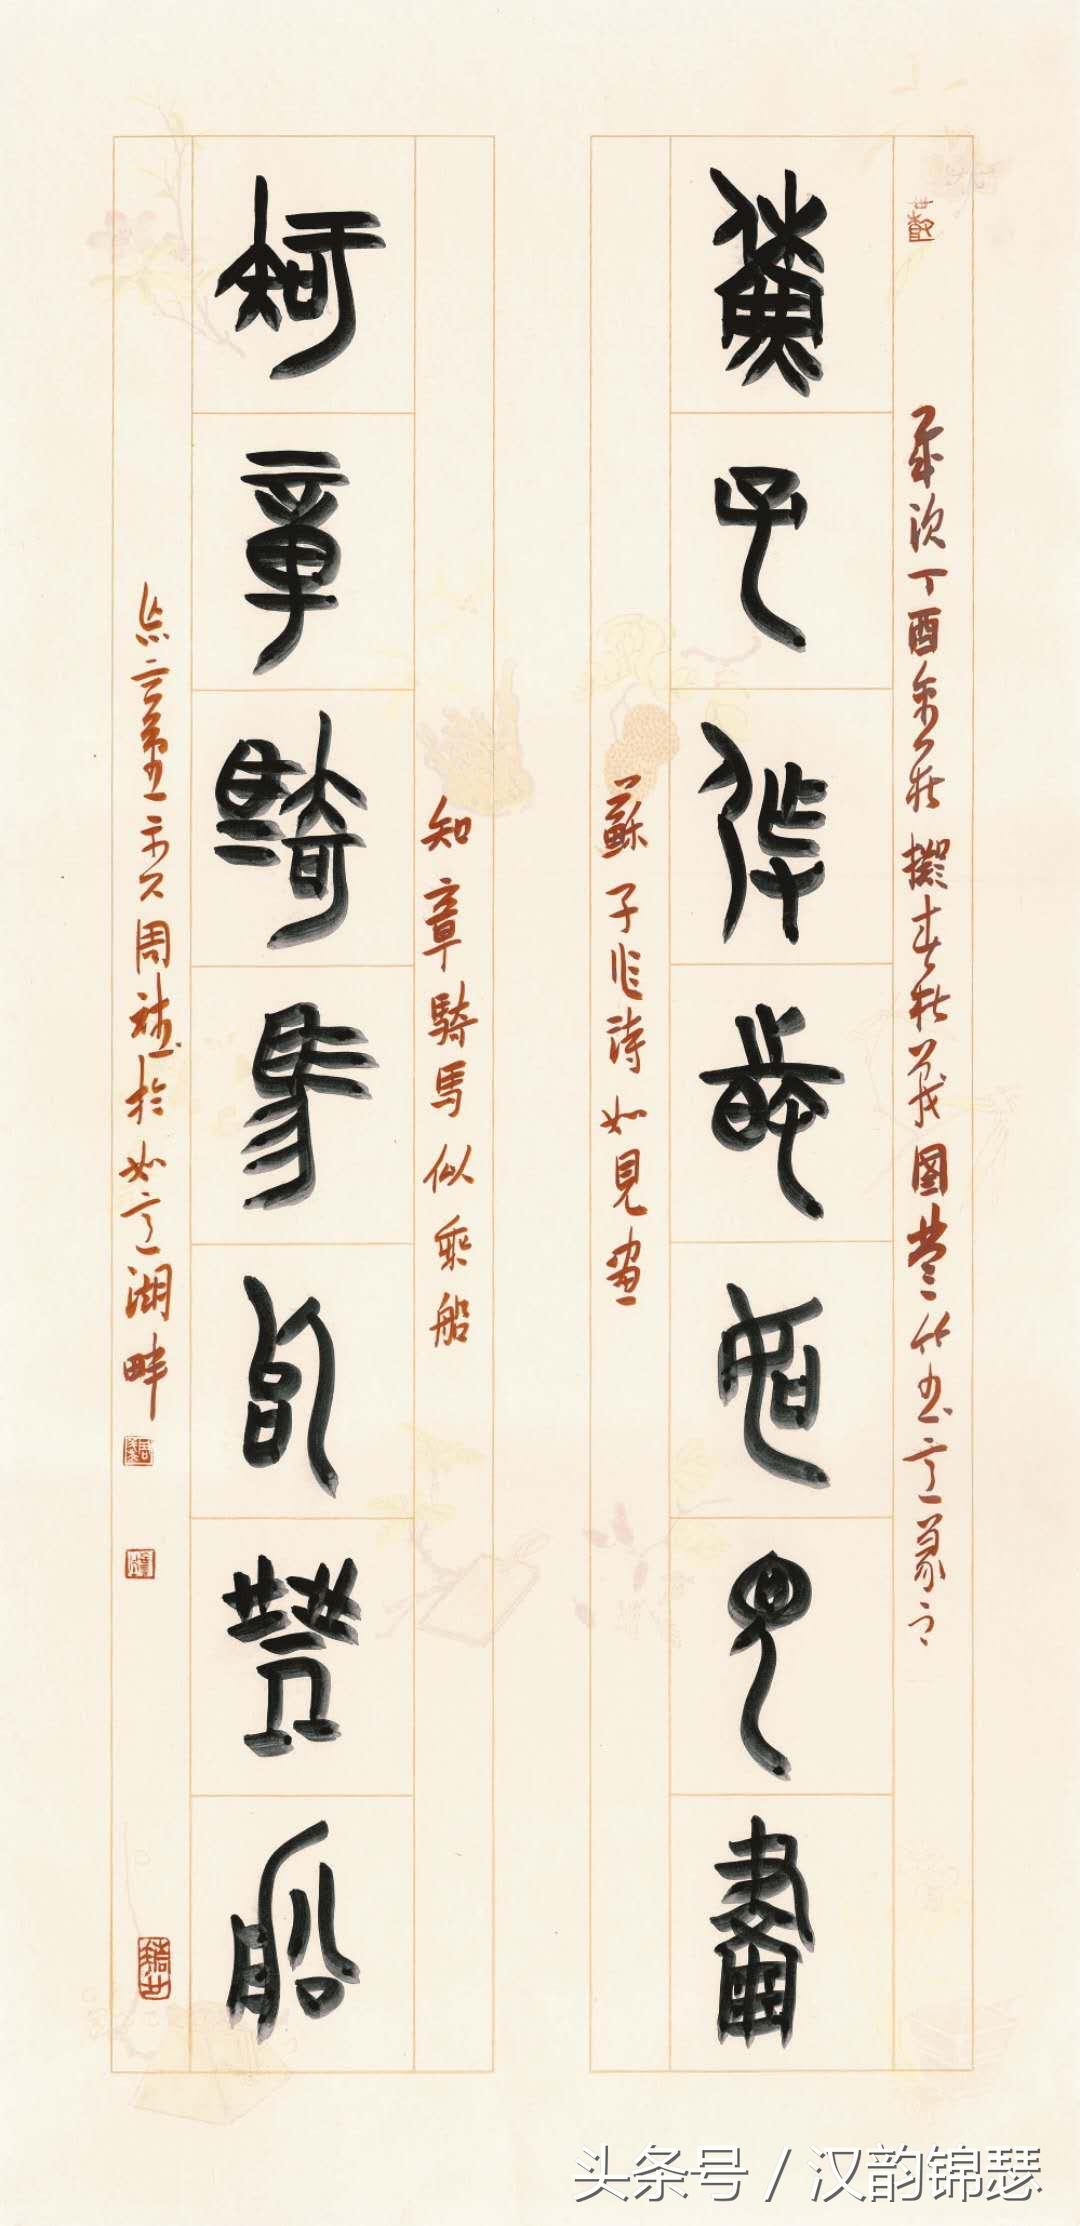 歲次丁酉金秋擬春秋戰國楚竹書意篆之
蘇子作詩如見畫
蘇子作詩如見畫
知章騎馬似乘船
知章騎馬似乘船
周於如意湖畔
头条号 / 汉韵锦瑟